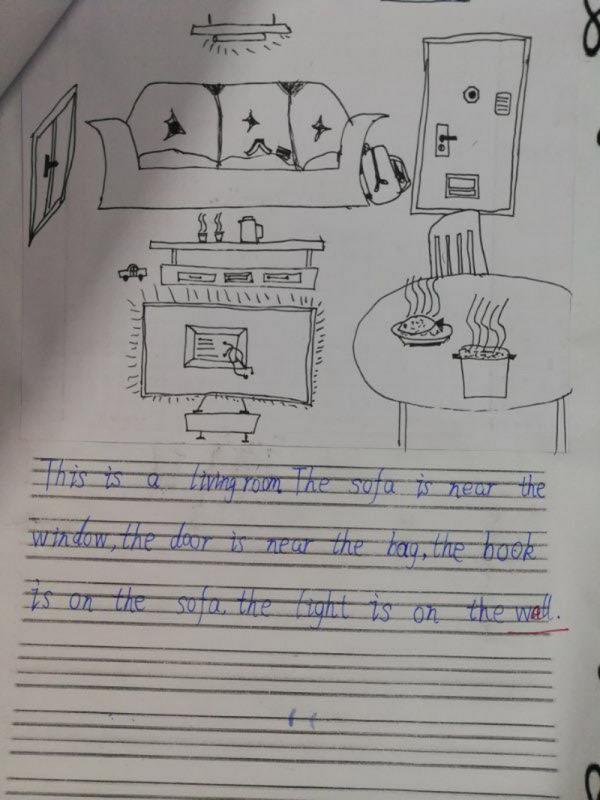 This is a living room. The sofa is near the
window, the door is near the bag, the book
is on the sofa, the light is on the wall.